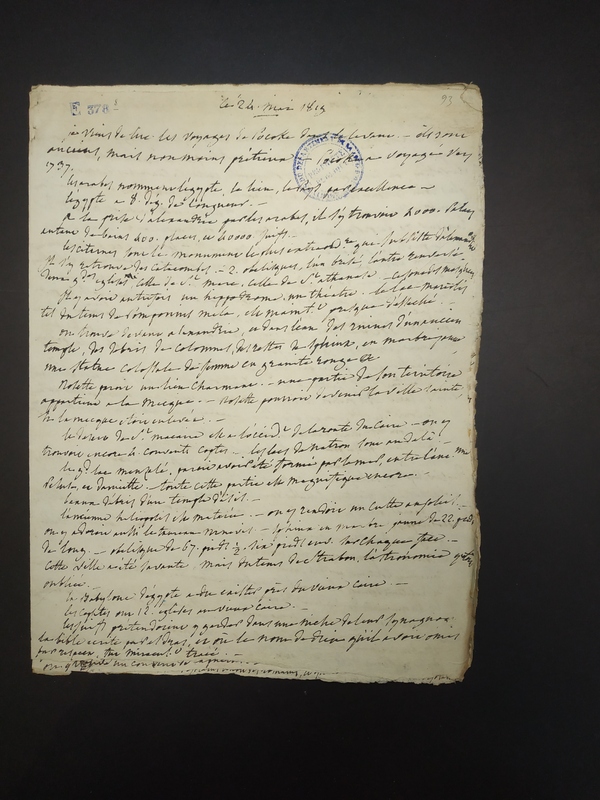 E 378
93
le 24 mai 1819
je viens de lire les voyages de Pococke dans le levant. — ils sont
anciens, mais non moins pococke a voyagé vers
1737.
les arabes nomment l'égypte, le lieu, le pays par excellence —
l'égypte a 8. deg. de longueur. —
à la prise d'alexandrie par les arabes, il s'y trouvoit 4000. palais
autant de bains 400. places, et 40000 juifs. —
les citernes sont le monument le plus entier
il s'y retrouve des catacombes. — 2. obélisques, l'un brisé, l'autre renversé.
églises celle de St. marc, celle de St. athanase
il y avoit autrefois un hippodrome, un théatre. — le lac mareotis
du tems de pomponius mela, est maint. presque desseché. —
on trouve devant alexandrie, et dans l'eau des ruines d'un ancien
temple, des débris de colonnes, des restes de sphinx, en marbre jaune
une statue colossale de femme en granite rouge &
Rosette paroit un lieu charmant. — une partie de son territoire
appartient a la mecque. — Rosette pourroit devenir la ville sainte,
si la mecque étoit enlevée. —
le désert de St. macaire est a l'occid. de la route du caire. — on y
trouve encore 4 couvents coptes. — les lacs de natron sont au delà —
le gd. lac menzalé, paroit avoir été formé par la mer, entre l'anc.
Peluse, et damiette — toute cette partie est magnifique encore. —
beaux débris d'un temple d'isis. —
l'ancienne heliopolis est matarée. — on y rendoit un culte au soleil. —
on y adoroit aussi le taureau mnevis. — sphinx en marbre jaune de 22. pieds
de long. — obélisque de 67. pieds ½. six pieds sur chaque face. —
cette ville a été savante. mais du tems de strabon, l'astronomie y étoit
oubliée. —
la Babylone d'égypte a du exister près du vieux caire. —
les coptes ont 12. églises au vieux caire. —
les juifs prétendoient y garder dans une niche de leur synagogue
la bible écrite par esdras, et où le nom de dieu qu'il avoit omis
par respect, fut miracul. tracé. —
un couvent de